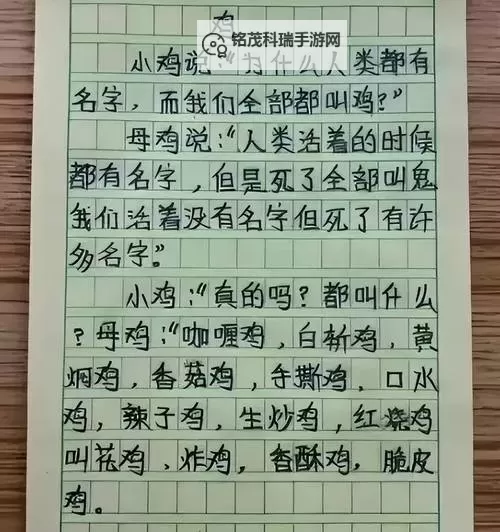 鸡
铭茂科瑞手游网
小鸡说:“为什么人类都有
名字，而我们全部都叫鸡?”
母鸡说:“人类活着的时候
都有名字，但是死了全部叫鬼
我们活着没有名字但死了有许
多名字”。
小鸡:“真的吗?都叫什么
?母鸡:“咖喱鸡，白斩鸡，黄
焖鸡，香菇鸡，手撕鸡，口水
鸡，辣子鸡，生炒鸡，红烧鸡
叫花鸡、炸鸡，香酥鸡，脆皮
鸡。